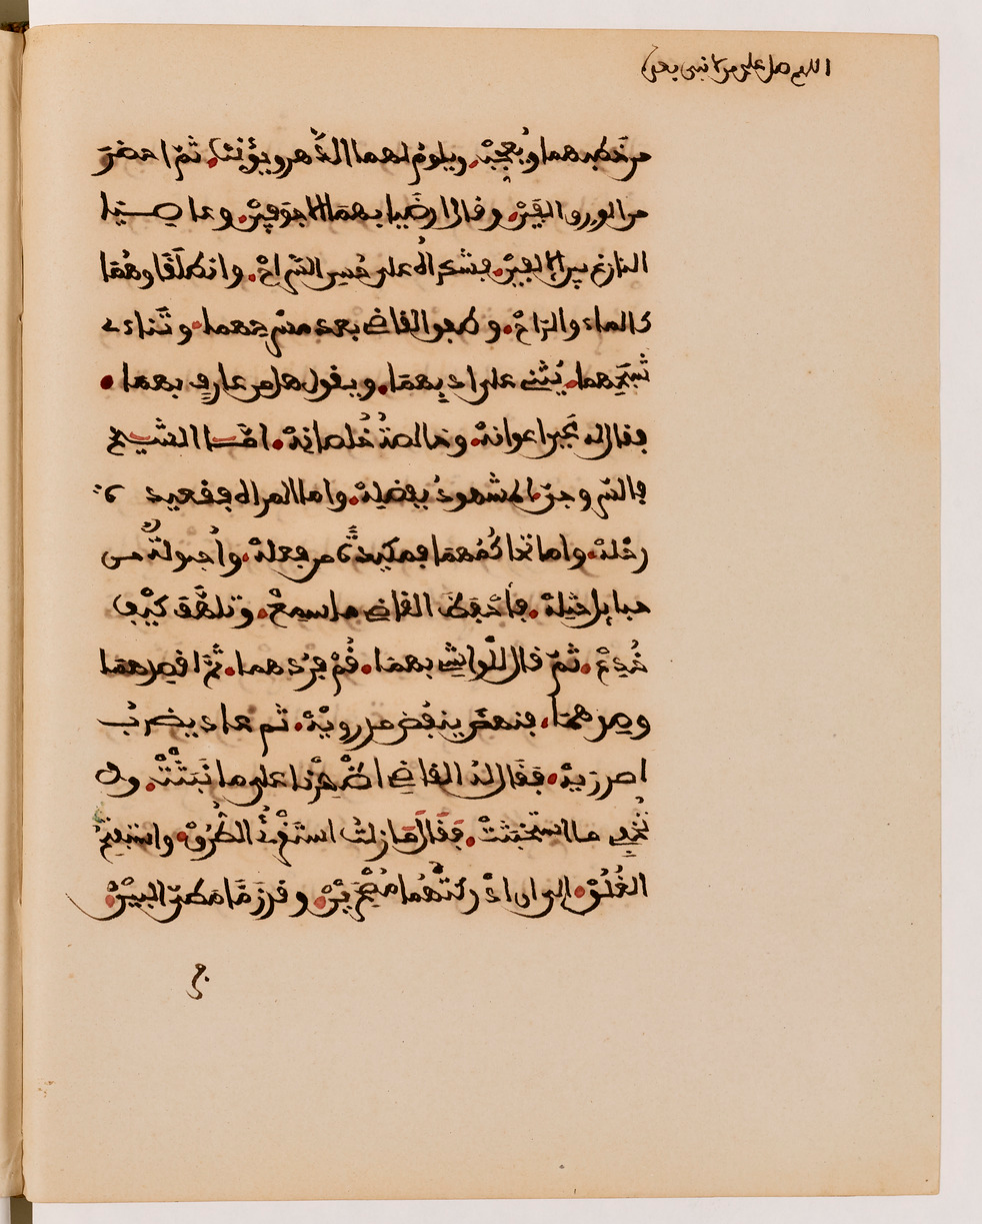 اللهم صل على من لا نبي بعده
من خَطبهما ويُعجِبْ. ويلومُ لهما الدَّهر ويؤنبُ. ثمّ احضر
من الورق القَيْنْ. وقال ارضَيا بهمَا الاجوَفيْنْ. وعاصيا
النازغ بين الالفيْنْ. فشكراهُ على حُسنِ السَّراحْ. وانطلَقَا وهُمَا
كالماء والرّاحْ. وطفق القاضي بعد مسْرحهما. وتَناءى
شبَحِهما. يُثني على ادبِهمَا. ويقول هل من عارفٍ بهما.
فقال له عَين اعوانهْ. وخالصَةُ خُلصانِهْ. امَّا الشيخ
فالسّروجيّ المشهودُ بفضلِهْ. واما المراة فقعيدة
رحْلهْ. واما تحاكُمُهمَا فمكيدَةٌ من فعلهْ. واُحبولةٌ من
حبايل ختلهْ. فأَحْفظَ القاضي ما سمعْ. وتلهَّفَ كيْف
خُدِعْ. ثمّ قال للْواشي بهمَا. قُمْ فرُدهما. ثمَّ اقصِدهمَا
وصِدهمَا. فنهضَ ينفُض مذرويْهْ. ثم عاد يضربُ
اصدريهْ. فقَال لهُ القاضي اظْهِرْنا على ما نَبَثتْ. ولا
تُخْفِ ما استخبَثتْ. فقَال مَا زلتُ استَقْرئُ الطُّرُقْ. واستفتِحُ
الغُلُقْ. الى ان ادْركتُهُما مُصْحِرَيْنْ. وقد زَمَّا مَطيّ البيْنْ.